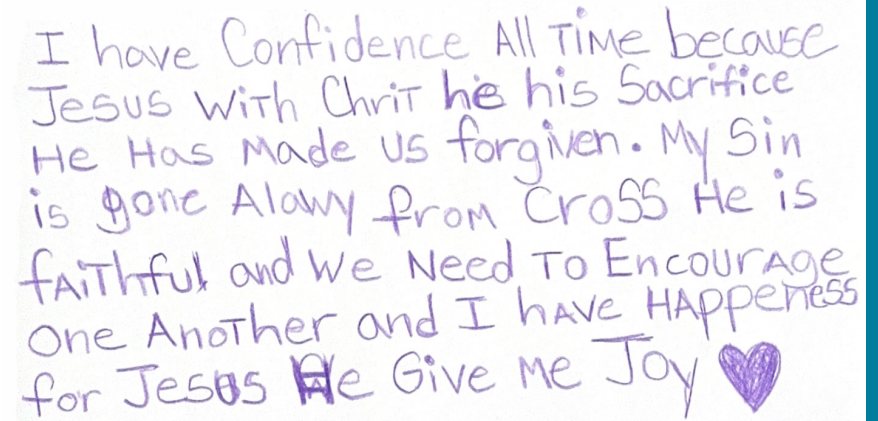 I have Confidence All Time because
Jesus With Chrit he his Sacrifice
He Has Made us forgiven. My Sin
is gone Alawy from Cross He is
fAiThful and We Need To EncourAge
One AnoTher and I hAve HAppeness
for Jesus He Give me Joy